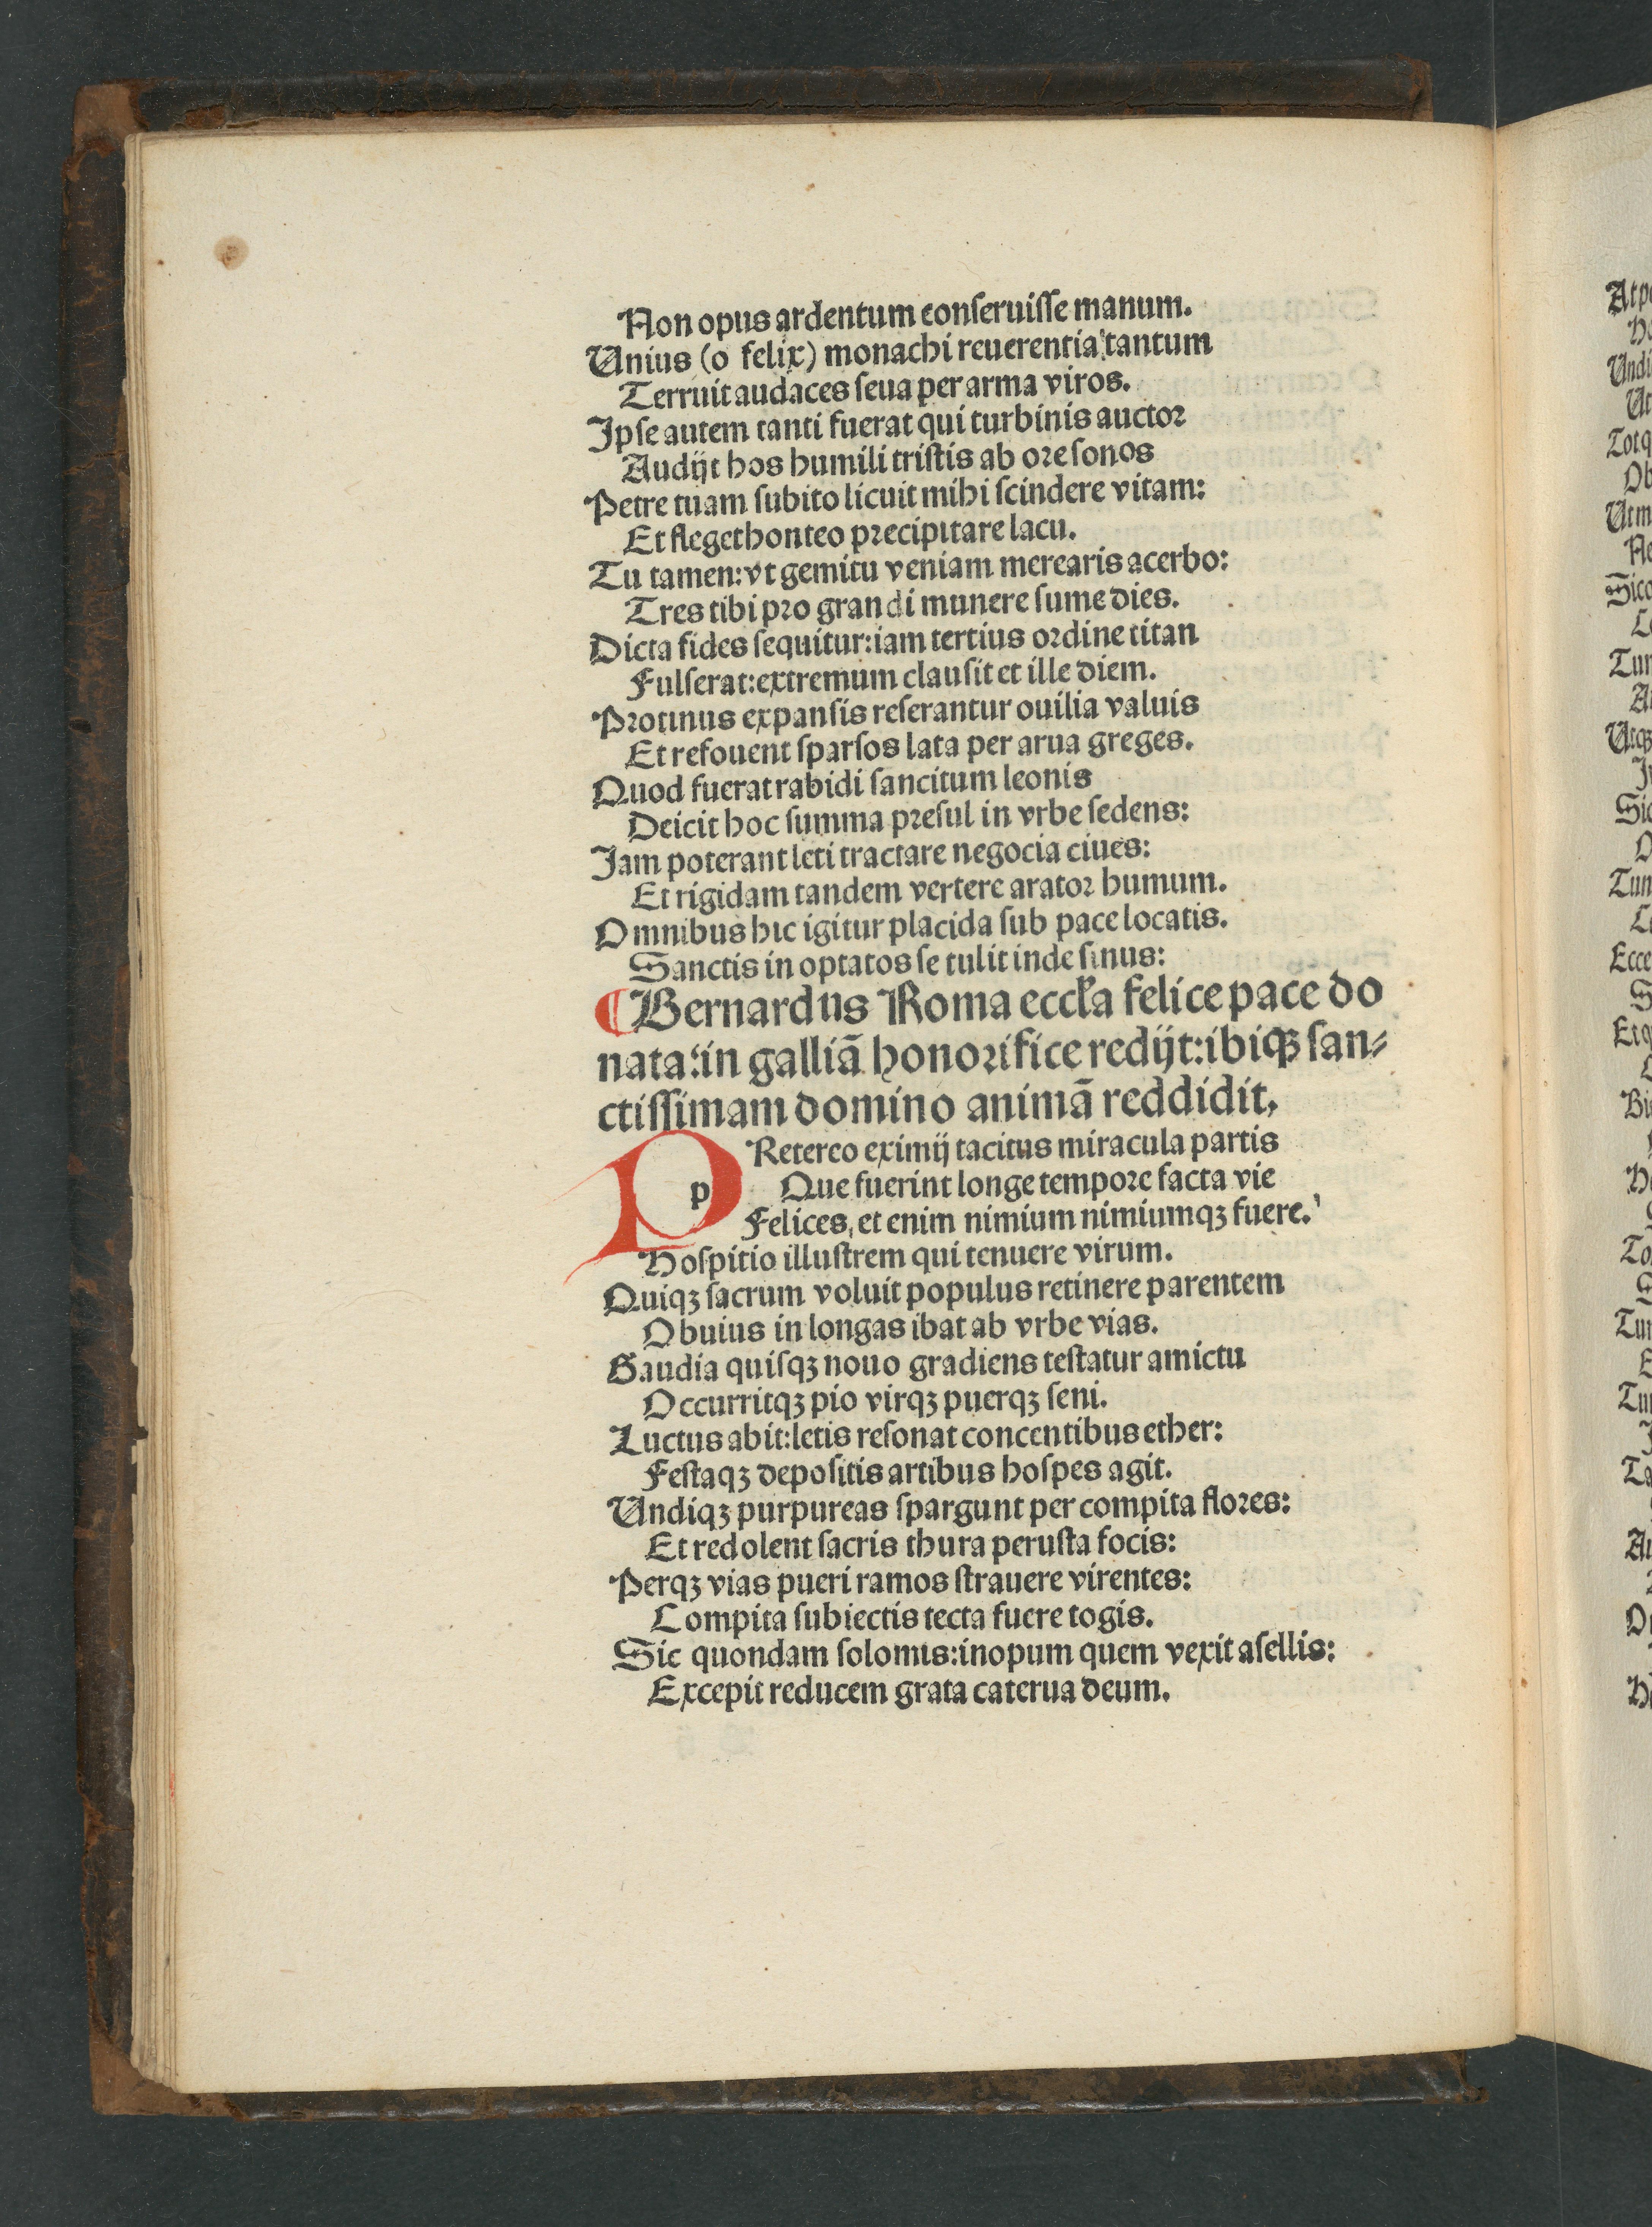 Non opus ardentum conſeruiſſe manum.
Unius (o felix) monachi reuerentia tantum
Terruit audaces ſeua per arma viros.
Ipſe autem tanti fuerat qui turbinis auctor
Audijt hos humili triſtis ab ore ſonos
Petre tuam ſubito licuit mihi ſcindere vitam:
Et flegethonteo precipitare lacu.
Tu tamen: vt gemitu veniam merearis acerbo:
Tres tibi pro grandi munere ſume dies.
Dicta fides ſequitur: iam tertius ordine titan
Fulſerat: extremum clauſit et ille diem.
Protinus expanſis reſerantur ouilia valuis
Et refouent ſparſos lata per arua greges.
Quod fuerat rabidi ſancitum leonis
Deicit hoc ſumma preſul in vrbe ſedens:
Jam poterant leti tractare negocia ciues:
Et rigidam tandem vertere arator humum.
Omnibus hic igitur placida ſub pace locatis.
Sanctis in optatos ſe tulit inde ſinus:
¶ Bernardus Roma eccła felice pace do
nata: in galliā honorifice redijt: ibiqꝫ ſan⸗
ctiſſimam domino animā reddidit,
p Retereo eximij tacitus miracula partis
Que fuerint longe tempore facta vie
Felices, et enim nimium nimiumqꝫ fuere.
Hoſpitio illuſtrem qui tenuere virum.
Quiqꝫ ſacrum voluit populus retinere parentem
Obuius in longas ibat ab vrbe vias.
Gaudia quiſqꝫ nouo gradiens teſtatur amictu
Occurritqꝫ pio virqꝫ puerqꝫ ſeni.
Luctus abit: letis reſonat concentibus ether:
Feſtaqꝫ depoſitis artibus hoſpes agit.
Undiqꝫ purpureas ſpargunt per compita flores:
Et redolent ſacris thura peruſta focis:
Perqꝫ vias pueri ramos ſtrauere virentes:
Compita ſubiectis tecta fuere togis.
Sic quondam ſolomis: inopum quem vexit aſellis:
Excepit reducem grata caterua deum.